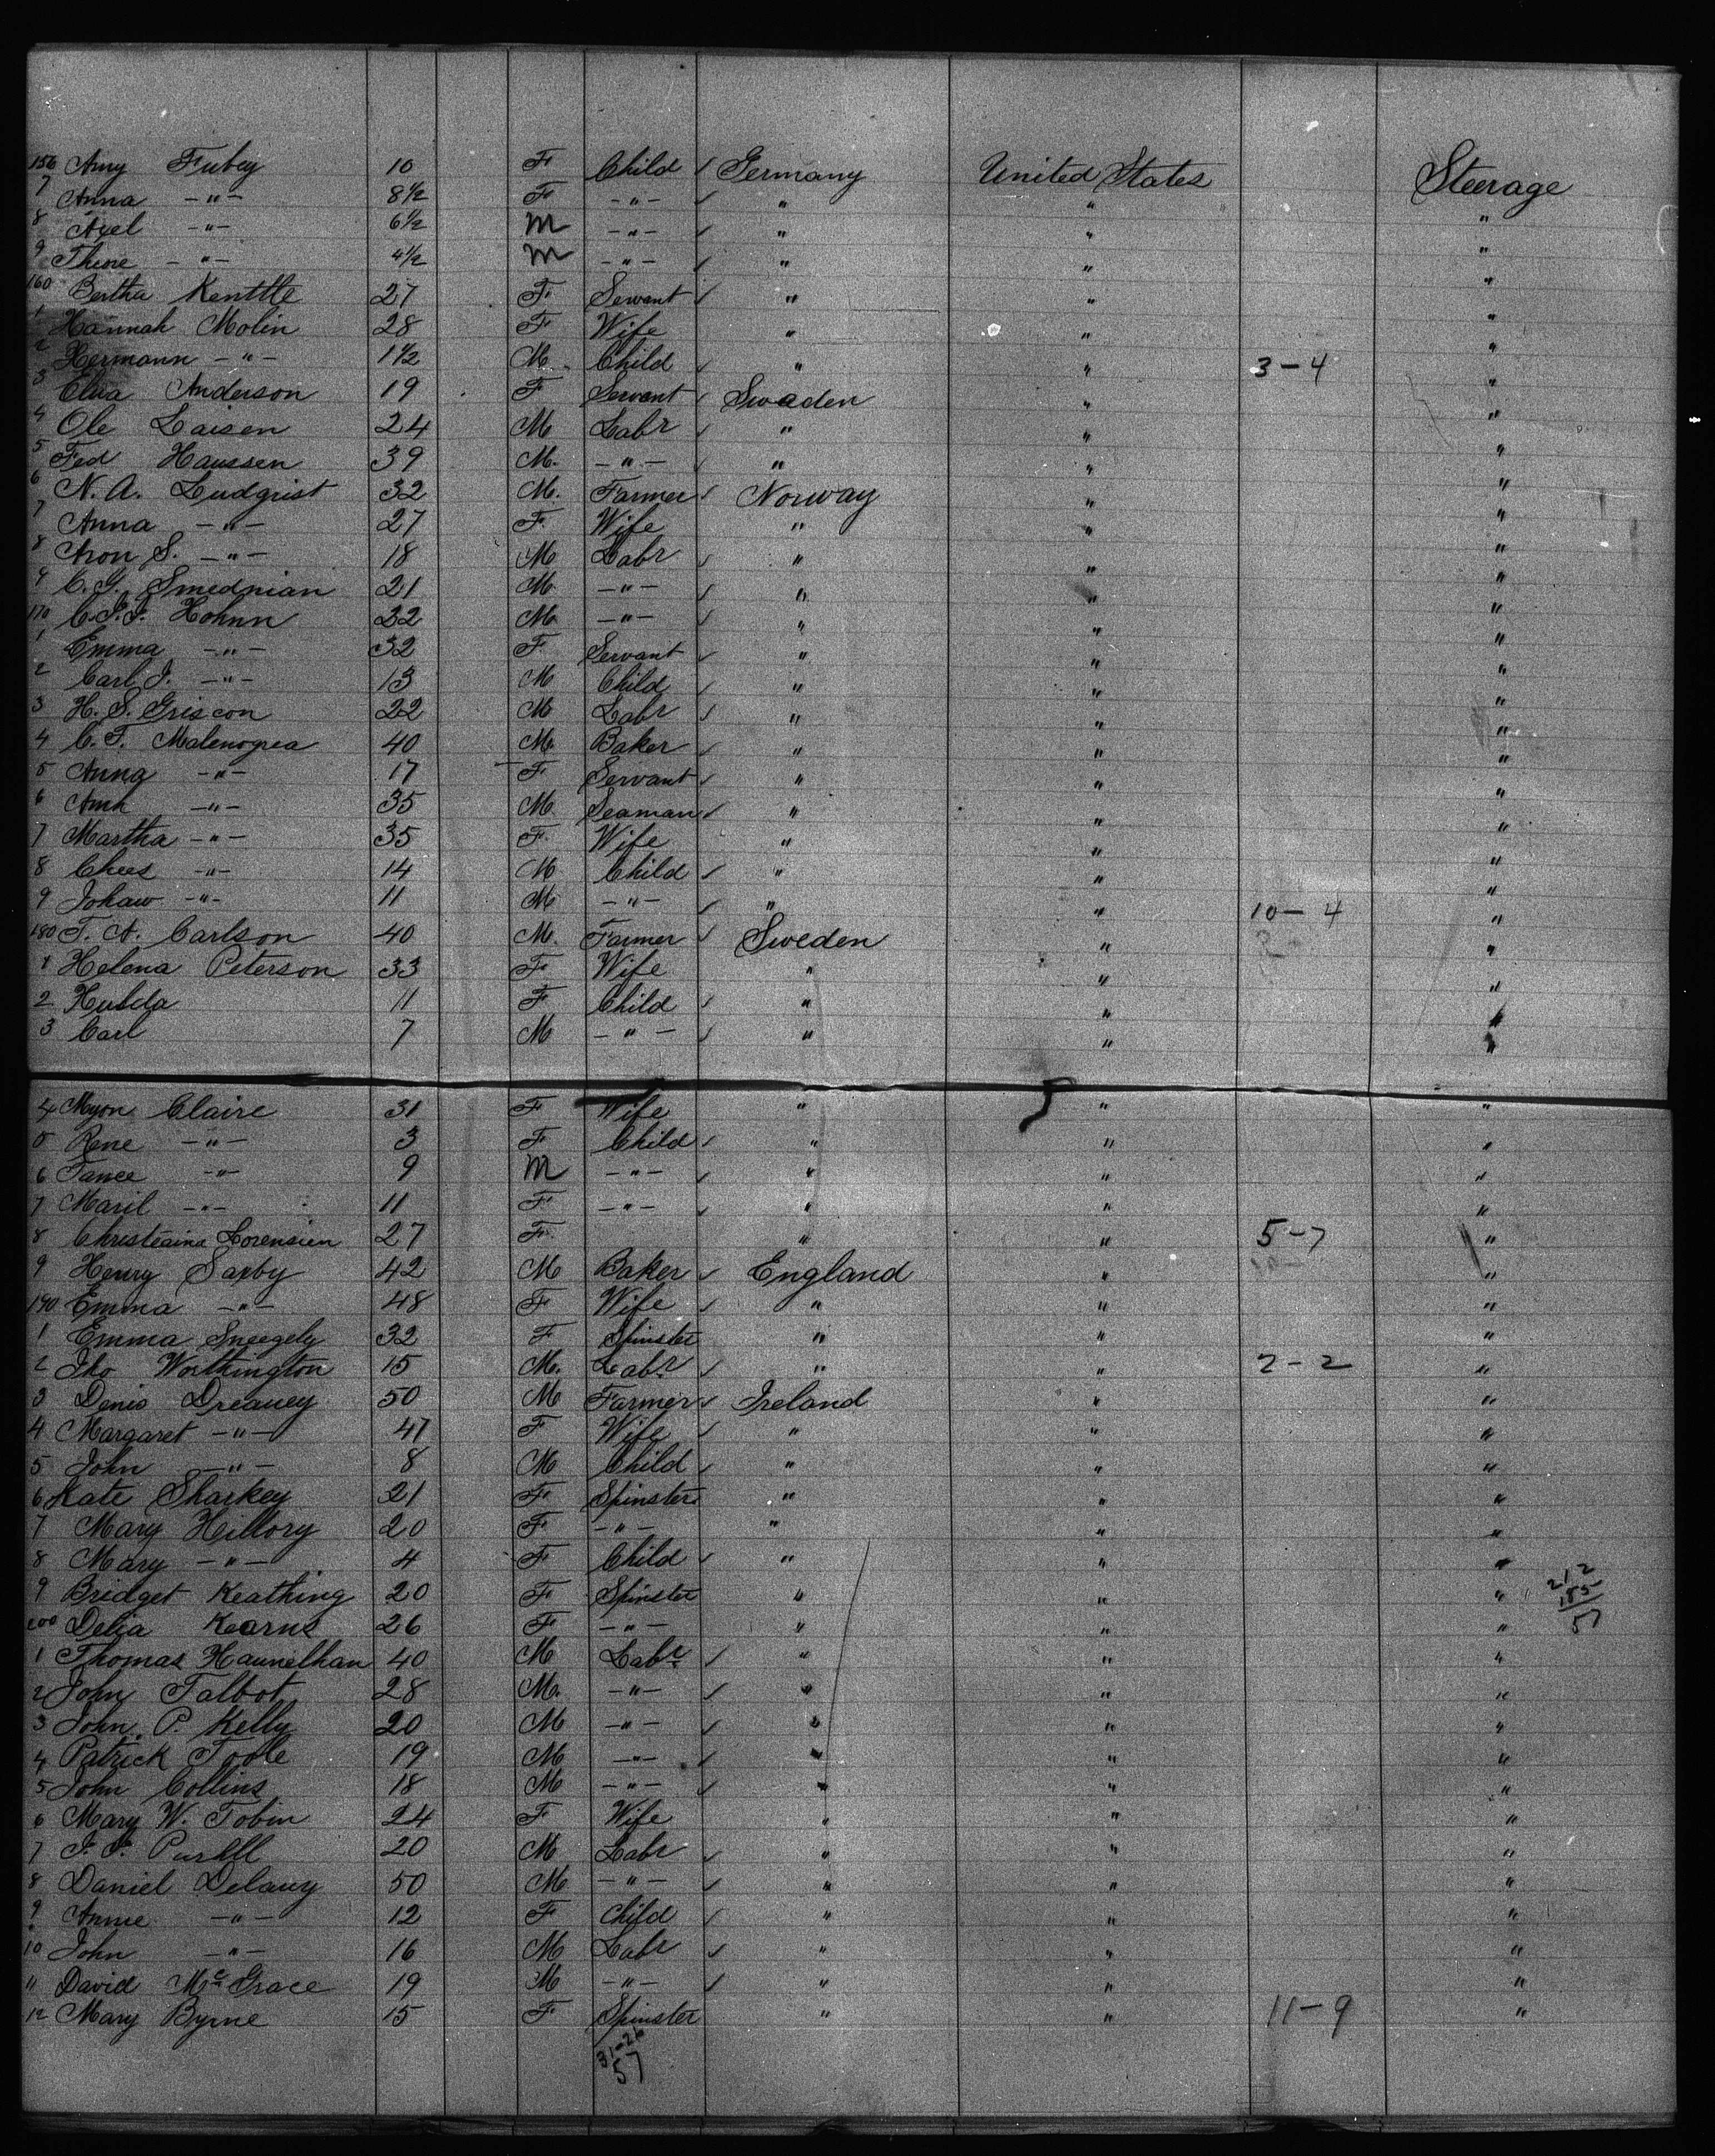 156 Amy Fubey 10 F Child ✓ Germany United States Steerage
7 Anna -"- 8½ F -"- ✓ " " "
8 Axel -"- 6½ M -"- ✓ " " "
9 Thure -"- 4½ M -"- ✓ " " "
160 Bertha Kenttle 27 F Servant ✓ " " "
1 Hannah Molin 28 F Wife " " "
2 Hermann -"- 1½ M. Child ✓ " " 3-4 "
3 Anderson 19 F Servant ✓ Sweden " "
4 Ole Laisen 24 M Labr ✓ " " "
5 Fed Haussen 39 M. -"- ✓ " " "
6 N. A. Ludgrist 32 M. Farmer ✓ Norway " "
7 Anna -"- 27 F. Wife " " "
8 Aron S. -"- 18 M Labr ✓ " " "
9 C. G. Smednian 21 M. -"- ✓ " " "
170 Hohnn 22 M. -"- " " "
1 Emma -"- 32 F Servant ✓ " " "
2 Carl J. -"- 13 M Child ✓ " " "
3 H. S. Griscon 22 M Labr ✓ " " "
4 C. F. Malenogrea 40 M. Baker ✓ " " "
5 Anna -"- 17 F Servant ✓ " " "
6 -"- 35 M. Seaman ✓ " " "
7 Martha -"- 35 F. Wife " " "
8 Chees -"- 14 M Child ✓ " " "
9 Johaw -"- 11 M -"- ✓ " " 10-4 "
180 T. A. Carlson 40 M. Farmer ✓ Sweden " "
1 Helena Peterson 33 F Wife " " "
2 Hulda 11 F Child ✓ " " "
3 Carl 7 M -"- ✓ " " "
4 Myon Claire 31 F Wife " " "
5 Rene -"- 3 F Child ✓ " " "
6 Tance -"- 9 M -"- ✓ " " "
7 Maril -"- 11 F -"- ✓ " " "
8 Christeaina Lorensien 27 F " " 5-7 "
9 Henry Saxby 42 M Baker ✓ England " "
190 Emma -"- 48 F Wife ✓ " " "
1 Emma Sneegely 32 F Spinster " " "
2 Tho Worthington 15 M. Labr ✓ " " 2-2 "
3 Denis Dreaney 50 M Farmer ✓ Ireland " "
4 Margaret -"- 41 F Wife " " "
5 John -"- 8 M Child ✓ " " "
6 Kate Sharkey 21 F Spinster " " "
7 Mary Hillory 20 F -"- " " "
8 Mary -"- 4 F Child ✓ " " "
9 Bridget Keathing 20 F Spinster " " " 212
185
57
200 Delia Kearns 26 F -"- " " "
1 Thomas Haunelhan 40 M Labr ✓ " " "
2 John Talbot 28 M. -"- ✓ " " "
3 John P. Kelly 20 M -"- ✓ " " "
4 Patrick Toole 19 M -"- ✓ " " "
5 John Collins 18 M -"- ✓ " " "
6 Mary W. Tobin 24 F Wife " " "
7 Pursell 20 M Labr ✓ " " "
8 Daniel Delany 50 M -"- ✓ " " "
9 Annie -"- 12 F Child ✓ " " "
10 John -"- 16 M Labr ✓ " " "
11 David McGrace 19 M -"- ✓ " " "
12 Mary Byrne 15 F Spinster " " 11-9 "
31-26
57